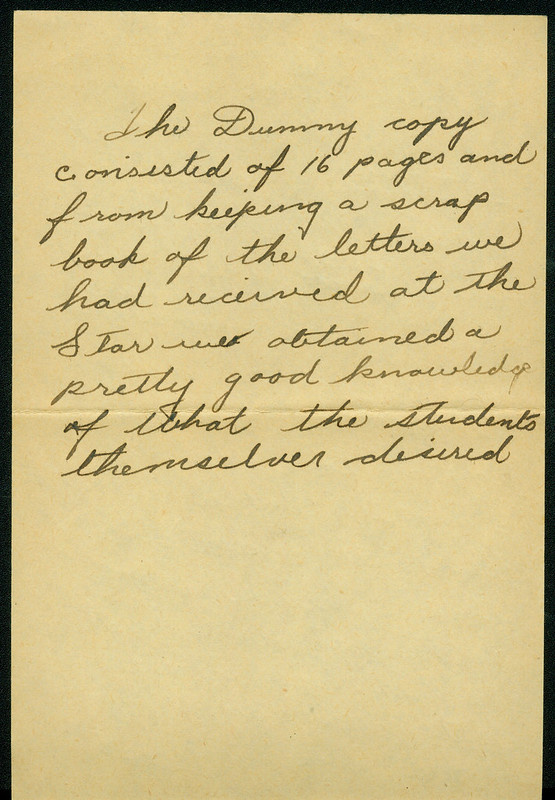 The Dummy copy
consisted of 16 pages and
from keeping a scrap
book of the letters we
had received at the
Star we obtained a
pretty good knowledge
of what the students
themselves desired